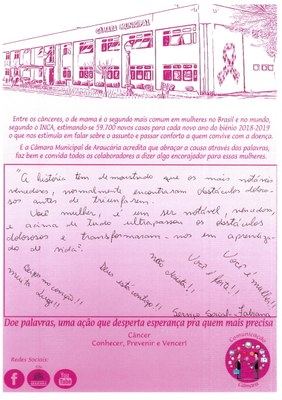 CÂMARA MUNICIPAL
Entre os cânceres, o de mama é o segundo mais comum em mulheres no Brasil e no mundo,
segundo o INCA, estimando-se 59.700 novos casos para cada novo ano do biênio 2018-2019
o que nos estimula em falar sobre o assunto e passar conforto a quem convive com a doença.
E a Câmara Municipal de Araucária acredita que abraçar a causa através das palavras,
faz bem e convida todos os colaboradores a dizer algo encorajador para essas mulheres.
"A história tem demostrado que os mais notáveis
vencedores, normalmente encontraram obstáculos doloro-
sos antes de triunfarem.
Você mulher, é um ser notável, vencedora,
e acima de tudo ultrapassou os obstáculos
dolorosos e transformaram-nos em aprendiza-
do de vida".
Você é mulher!
Você é forte!!
Deus está contigo!!
nesta luta!!
muita força!!
Serviço Social - Fabiana
Doe palavras, uma ação que desperta esperança pra quem mais precisa
Câncer
Conhecer, Prevenir e Vencer!
Redes Sociais:
You Tube